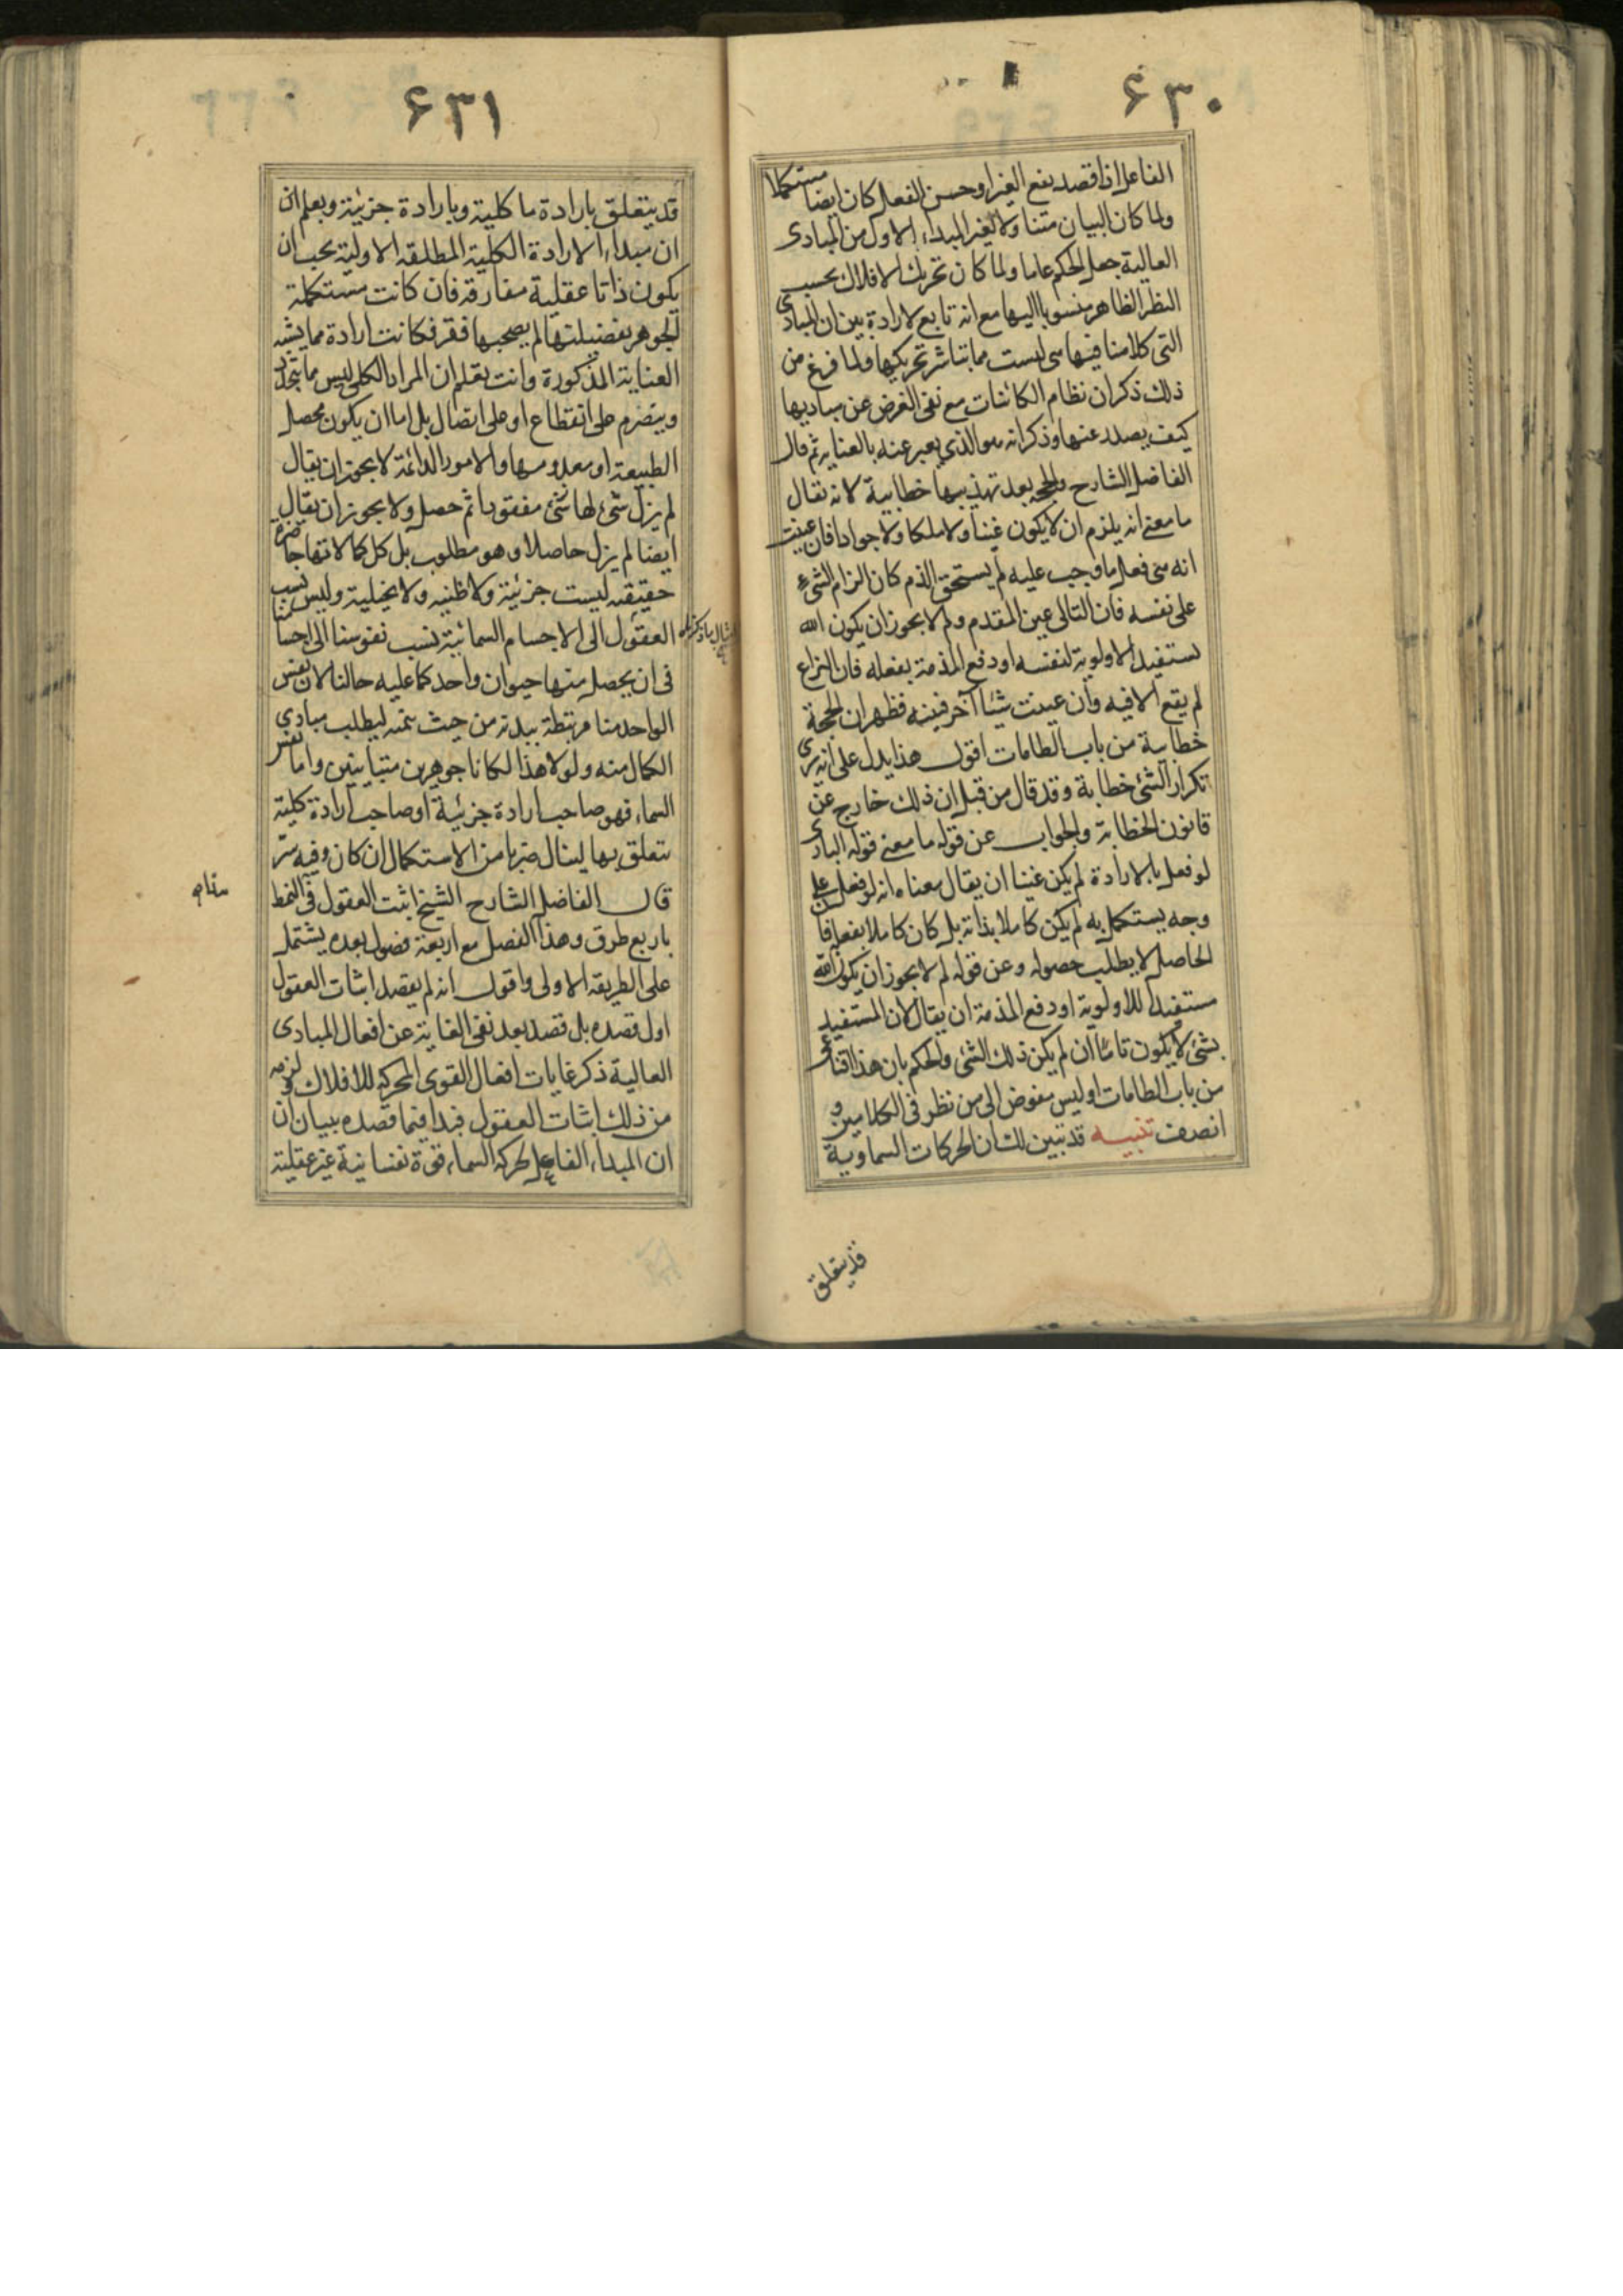 ۶۳۰
الفاعل اذا قصد نفع الغير او حسن الفعل كان ايضا مستكملا
ولما كان البيان متناولا لغير المبداء الاول من المبادى
العالية جعل الحكم عاما ولما كان تحريك الافلاك بحسب
النظر الظاهر منسوبا اليها مع انه تابع لارادة بين ان المبادى
التى كلامنا فيها هى ليست مما تباشر تحريكها ولما فرغ من
ذلك ذكر ان نظام الكائنات مع نفى الغرض عن مباديها
كيف يصدر عنها وذكر انه هو الذي يعبر عنه بالعناية ثم قال
الفاضل الشارح والحجة بعد تهذيبها خطابية لانه يقال
ما معنى انه يلزم ان لا يكون غنيا ولا ملكا ولا جوادا فان عنيت
انه متى فعل ما وجب عليه لم يستحق الذم كان الزام الشىء
على نفسه فان التالى عين المقدم ولم لا يجوز ان يكون الله
يستفيد الاولوية لنفسه او دفع المذمة بفعله فان النزاع
لم يقع الا فيه وان عينت شيئا آخر فبينه فظهر ان الحجة
خطابية من باب الطامات اقول هذا يدل على انه يرى
تكرار الشئ خطابة وقد قال من قبل ان ذلك خارج عن
قانون الخطابة والجواب عن قوله ما معنى قوله البارى
لو فعل بالارادة لم يكن غنيا ان يقال معناه انه لو فعل على
وجه يستكمل به لم يكن كاملا بذاته بل كان كاملا بفعله فان
الحاصل لا يطلب حصوله وعن قوله لم لا يجوز ان يكون الله
مستفيدا للاولوية او دفع المذمة ان يقال لان المستفيد
بشئ لا يكون تاما ان لم يكن ذلك الشئ والحكم بان هذا اقناعى
من باب الطامات او ليس مفوض الى من نظر فى الكلامين و
انصف تنبيه قد تبين لك ان الحركات السماوية
قد يتعلق
۶۳۱
قد يتعلق بارادة ما كلية وبارادة جزئية ويعلم ان
ان مبداء الارادة الكلية المطلقه الاولية يجب ان
يكون ذاتا عقلية مفارقة فان كانت مستكملة
الجوهر بفضيلتها لم يصحبها فقر فكانت ارادة مما يشبه
العناية المذكورة وانت تعلم ان المراد الكلى ليس مما يتجدد
ويتصرم على انقطاع او على اتصال بل اما ان يكون محصل
الطبيعة او معدومها والامور الدائمة لا يجوز ان يقال
لم يزل شئ لها شئ مفقودا ثم حصل ولا يجوز ان يقال
ايضا لم يزل حاصلا وهو مطلوب بل كل كمالاتها حاضرة
حقيقيه ليست جزئية ولا ظنيه ولا تخيلية وليس نسب
العقول الى الاجسام السمائية نسب نفوسنا الى اجسامنا
فى ان يحصل منها حيوان واحد كما عليه حالنا لان نفس
الواحد منا مرتبطة ببدنه من حيث تتمه ليطلب مبادى
الكمال منه ولولا هذا لكانا جوهرين متباينين واما نفس
السماء فهو صاحب ارادة جزئية او صاحب ارادة كلية
يتعلق بها لينال ضربا من الاستكمال ان كان وفيه سر
قال الفاضل الشارح الشيخ اثبت العقول فى النمط
باربع طرق وهذا الفصل مع اربعة فصول بعده يشتمل
على الطريقه الاولى واقول انه لم يقصد اثبات العقول
اول قصده بل قصد بعد نفى الغاية عن افعال المبادى
العالية ذكر غايات افعال القوى المحركه للافلاك ولزمه
من ذلك اثبات العقول فبدا فيما قصده ببيان ان
ان المبداء الفاعل لحركه السماء قوة نفسانية غير عقلية